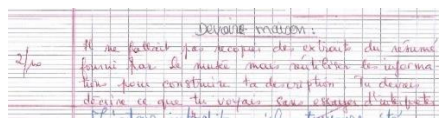 Devoirs maison :
2/10
Il ne fallait pas recopier des extraits du résumé
fourni par le musée mais réutiliser les informa-
tions pour construire ta description. Tu devais
décrire ce que tu voyais sans essayer d'interpréter